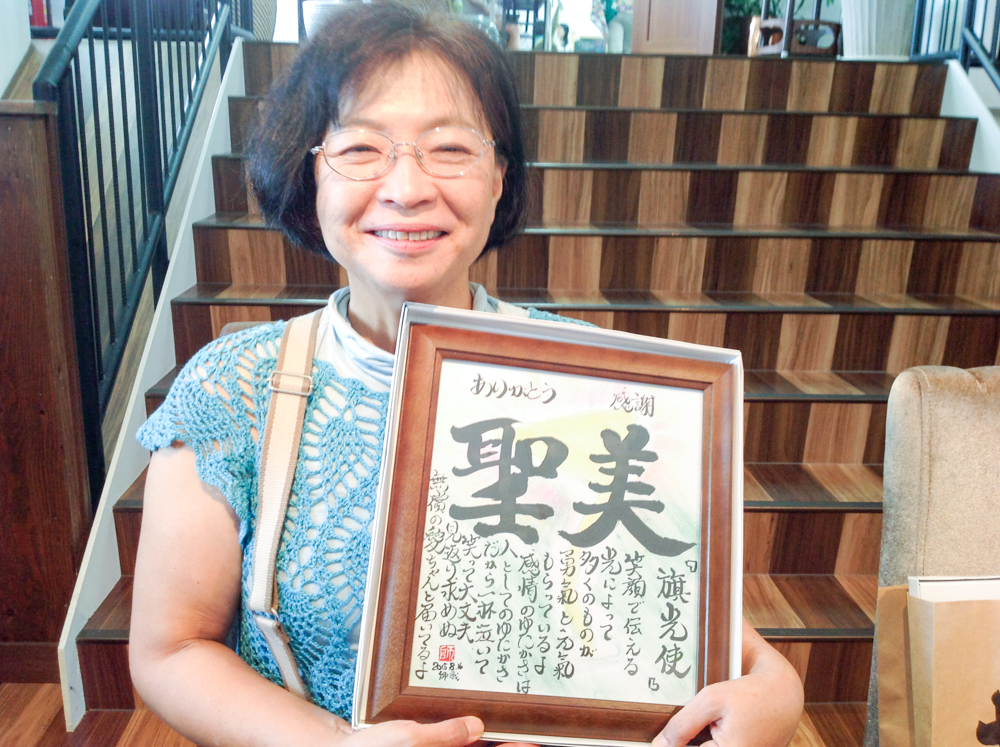 ありがとう 感謝
美聖
『旗光使』
笑顔で伝える
光によって
多くのものが
勇氣と元氣
もらっているよ
感情のゆたかさは
人としてのゆたかさ
だから一杯泣いて
笑って大丈夫
見返り求めぬ
無償の愛ちゃんと届いてるよ
師
2015.8.16